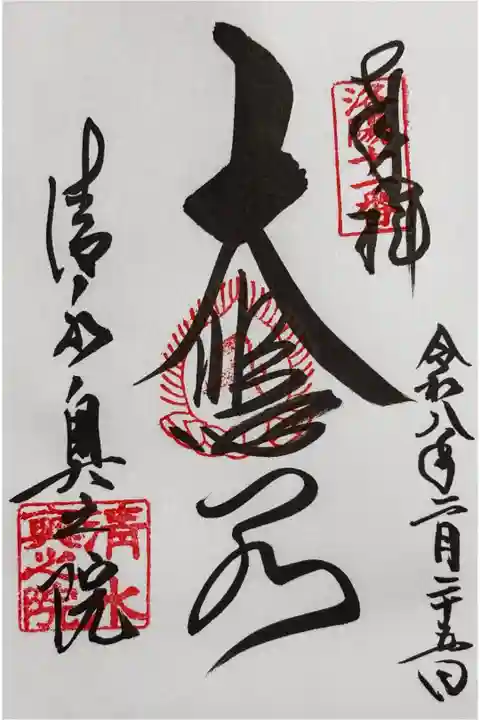 奉拝
洛陽十一番
令和八年二月二十五日
大悲閣
清水奥之院
清水奥之院